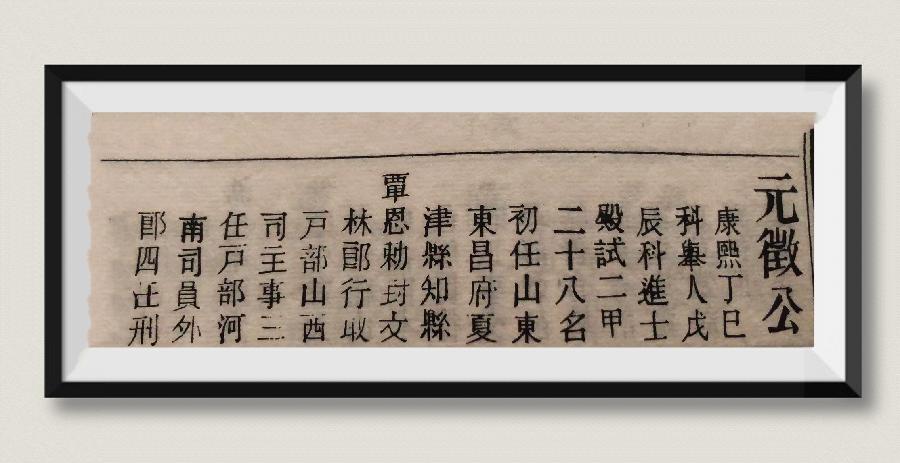 元徵公
康熙丁巳
科舉人戊
辰科進士
殿試二甲
二十八名
初任山東
東昌府夏
津縣知縣
覃恩勅封文
林郎行取
戸部山西
司主事三
任戸部河
南司員外
郎四任刑